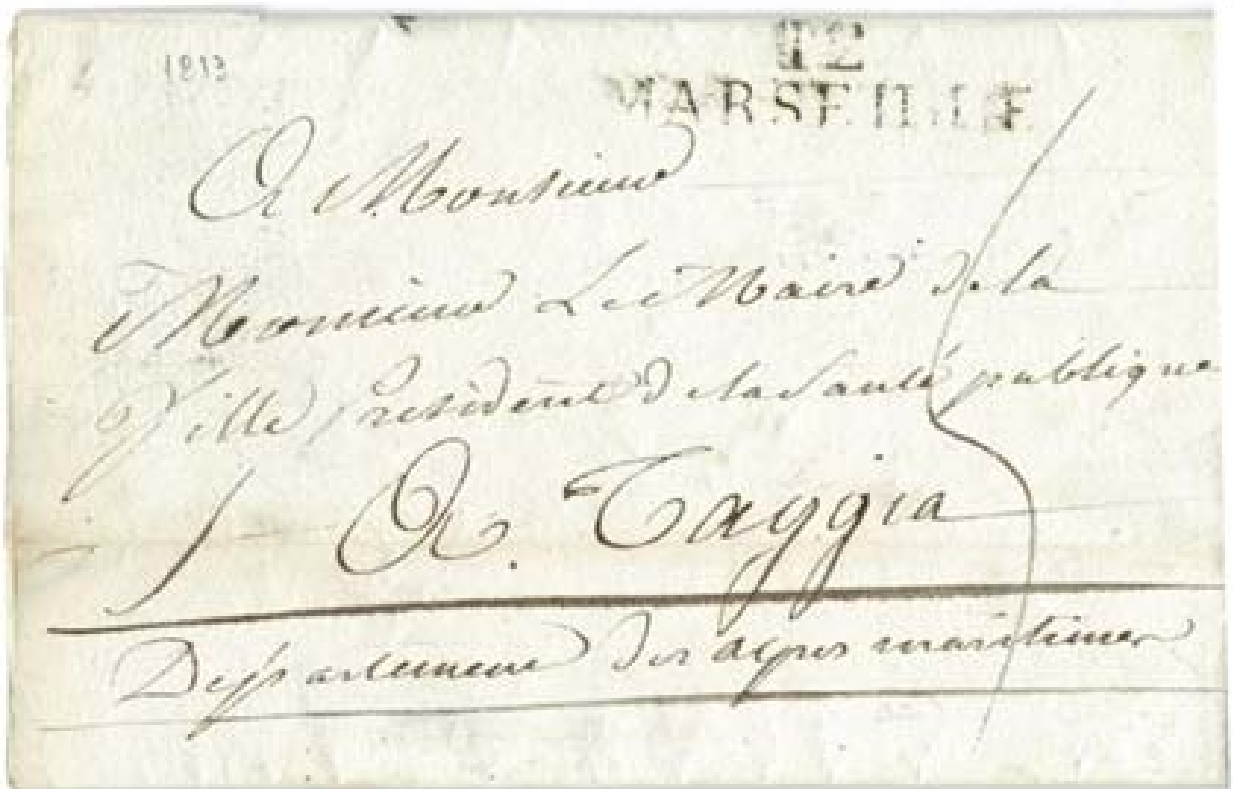 1813
12
MARSEILLE
A Monsieur
Monsieur Le Maire de la
Ville president de la Santé publique
A. Taggia
Departement des alpes maritimes